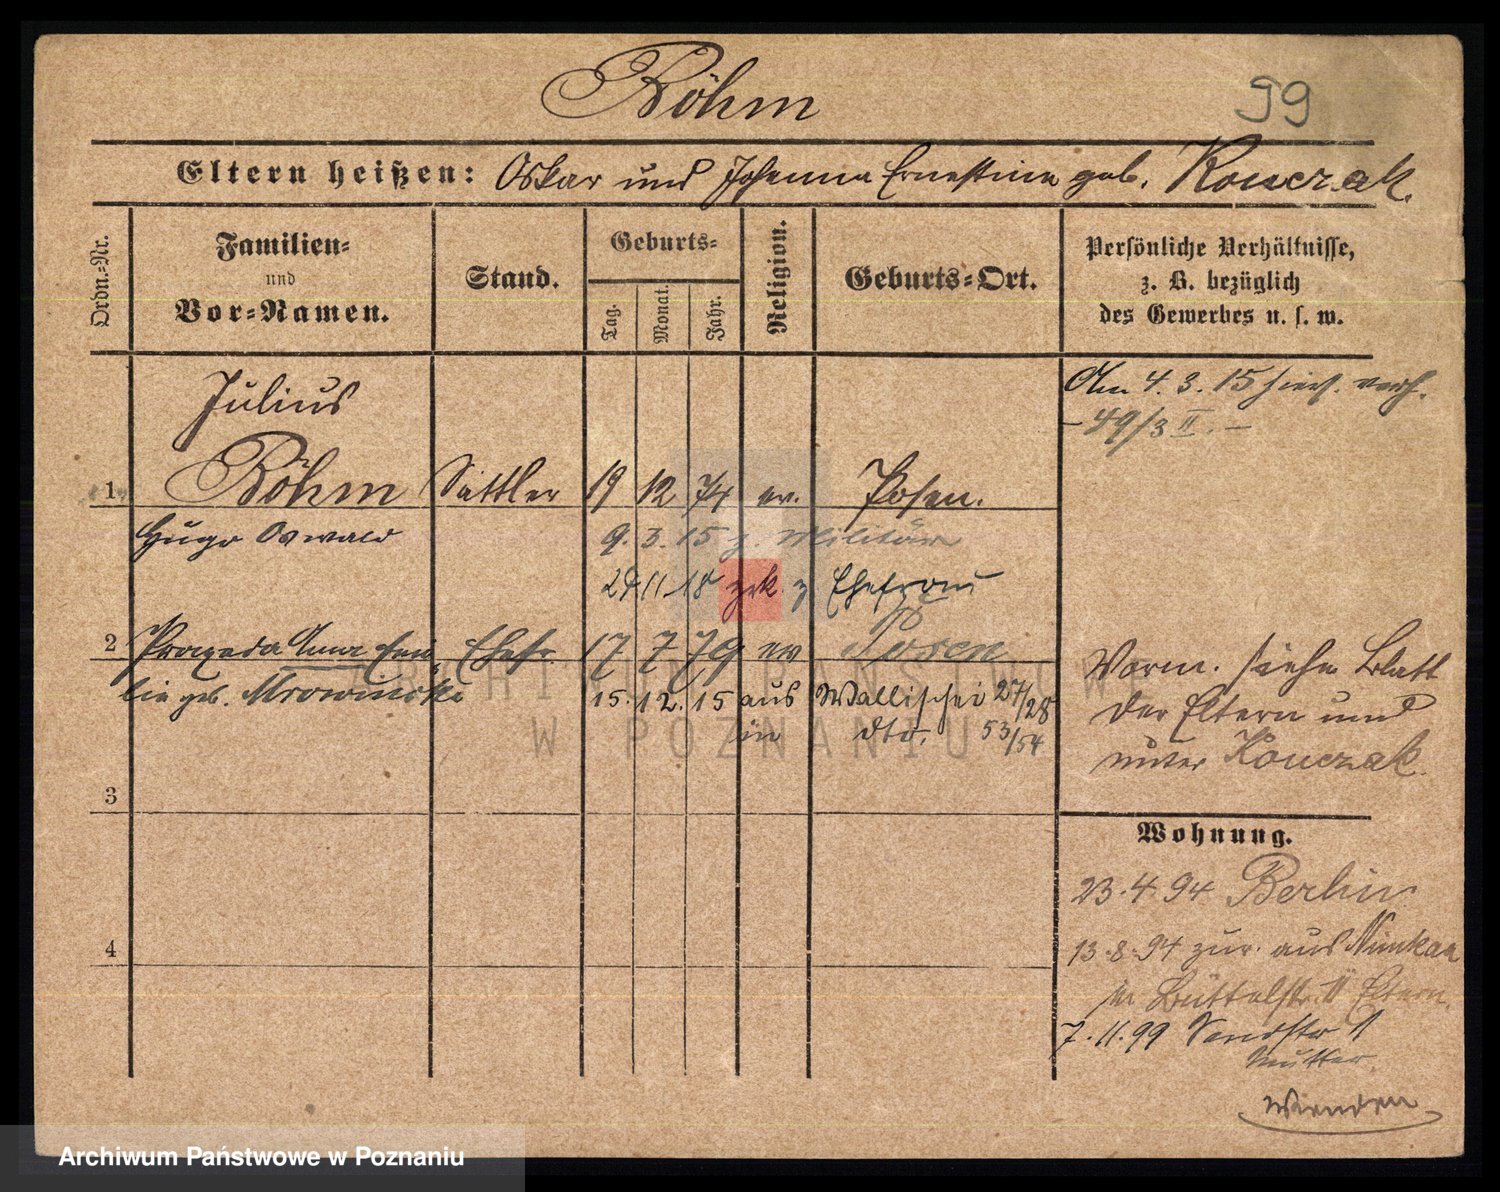 Böhm
99
Eltern heißen: Oskar und Johanna Ernestine geb. Konczak.
Ordn.=Nr.
Familien=
und
Vor=Namen.
Stand.
Geburts=
Tag.
Monat.
Jahr.
Religion.
Geburts=Ort.
Persönliche Verhältnisse,
z. B. bezüglich
des Gewerbes u. s. w.
Julius
1 Böhm Sattler 19 12 74 ev. Posen.
Hugo Oswald
9. 3. 15 z. Militär
29 11 18 zrk. z Ehefrau
Am 4. 3. 15 hier. verh.
- 49/3 II. -
2 Praxeda Anna Emi Ehefr. 17 7 79 ev Posen
lie geb. Mrowinska
15. 12. 15 aus Wallischei 27/28
in dto. 53/54
Vorm. siehe Blatt
der Eltern und
unter Konczak.
3
4
Wohnung.
23. 4. 94 Berlin
13. 8. 94 zur. aus Nimkau
Büttelstr. Eltern.
7. 11. 99 Sandstr 1
Mutter
wenden
ARCHIWUM PAŃSTWOWE
W POZNANIU
Archiwum Państwowe w Poznaniu